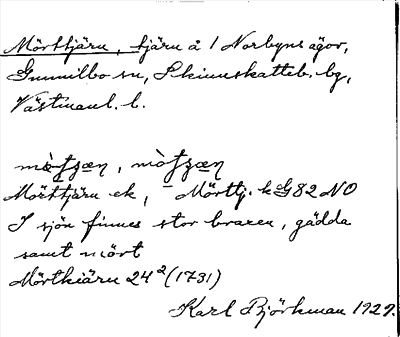 Mörttjärn, tjärn å 1 Norbyns ägor,
Gunnilbo sn, Skinnskatteb. bg,
Västmanl. l.
Mörttjärn ek, Mörttj. k 82 NO
I sjön finnes stor braxen, gädda
samt mört
Mörtkiärn 24² (1731)
Karl Björkman 1929.